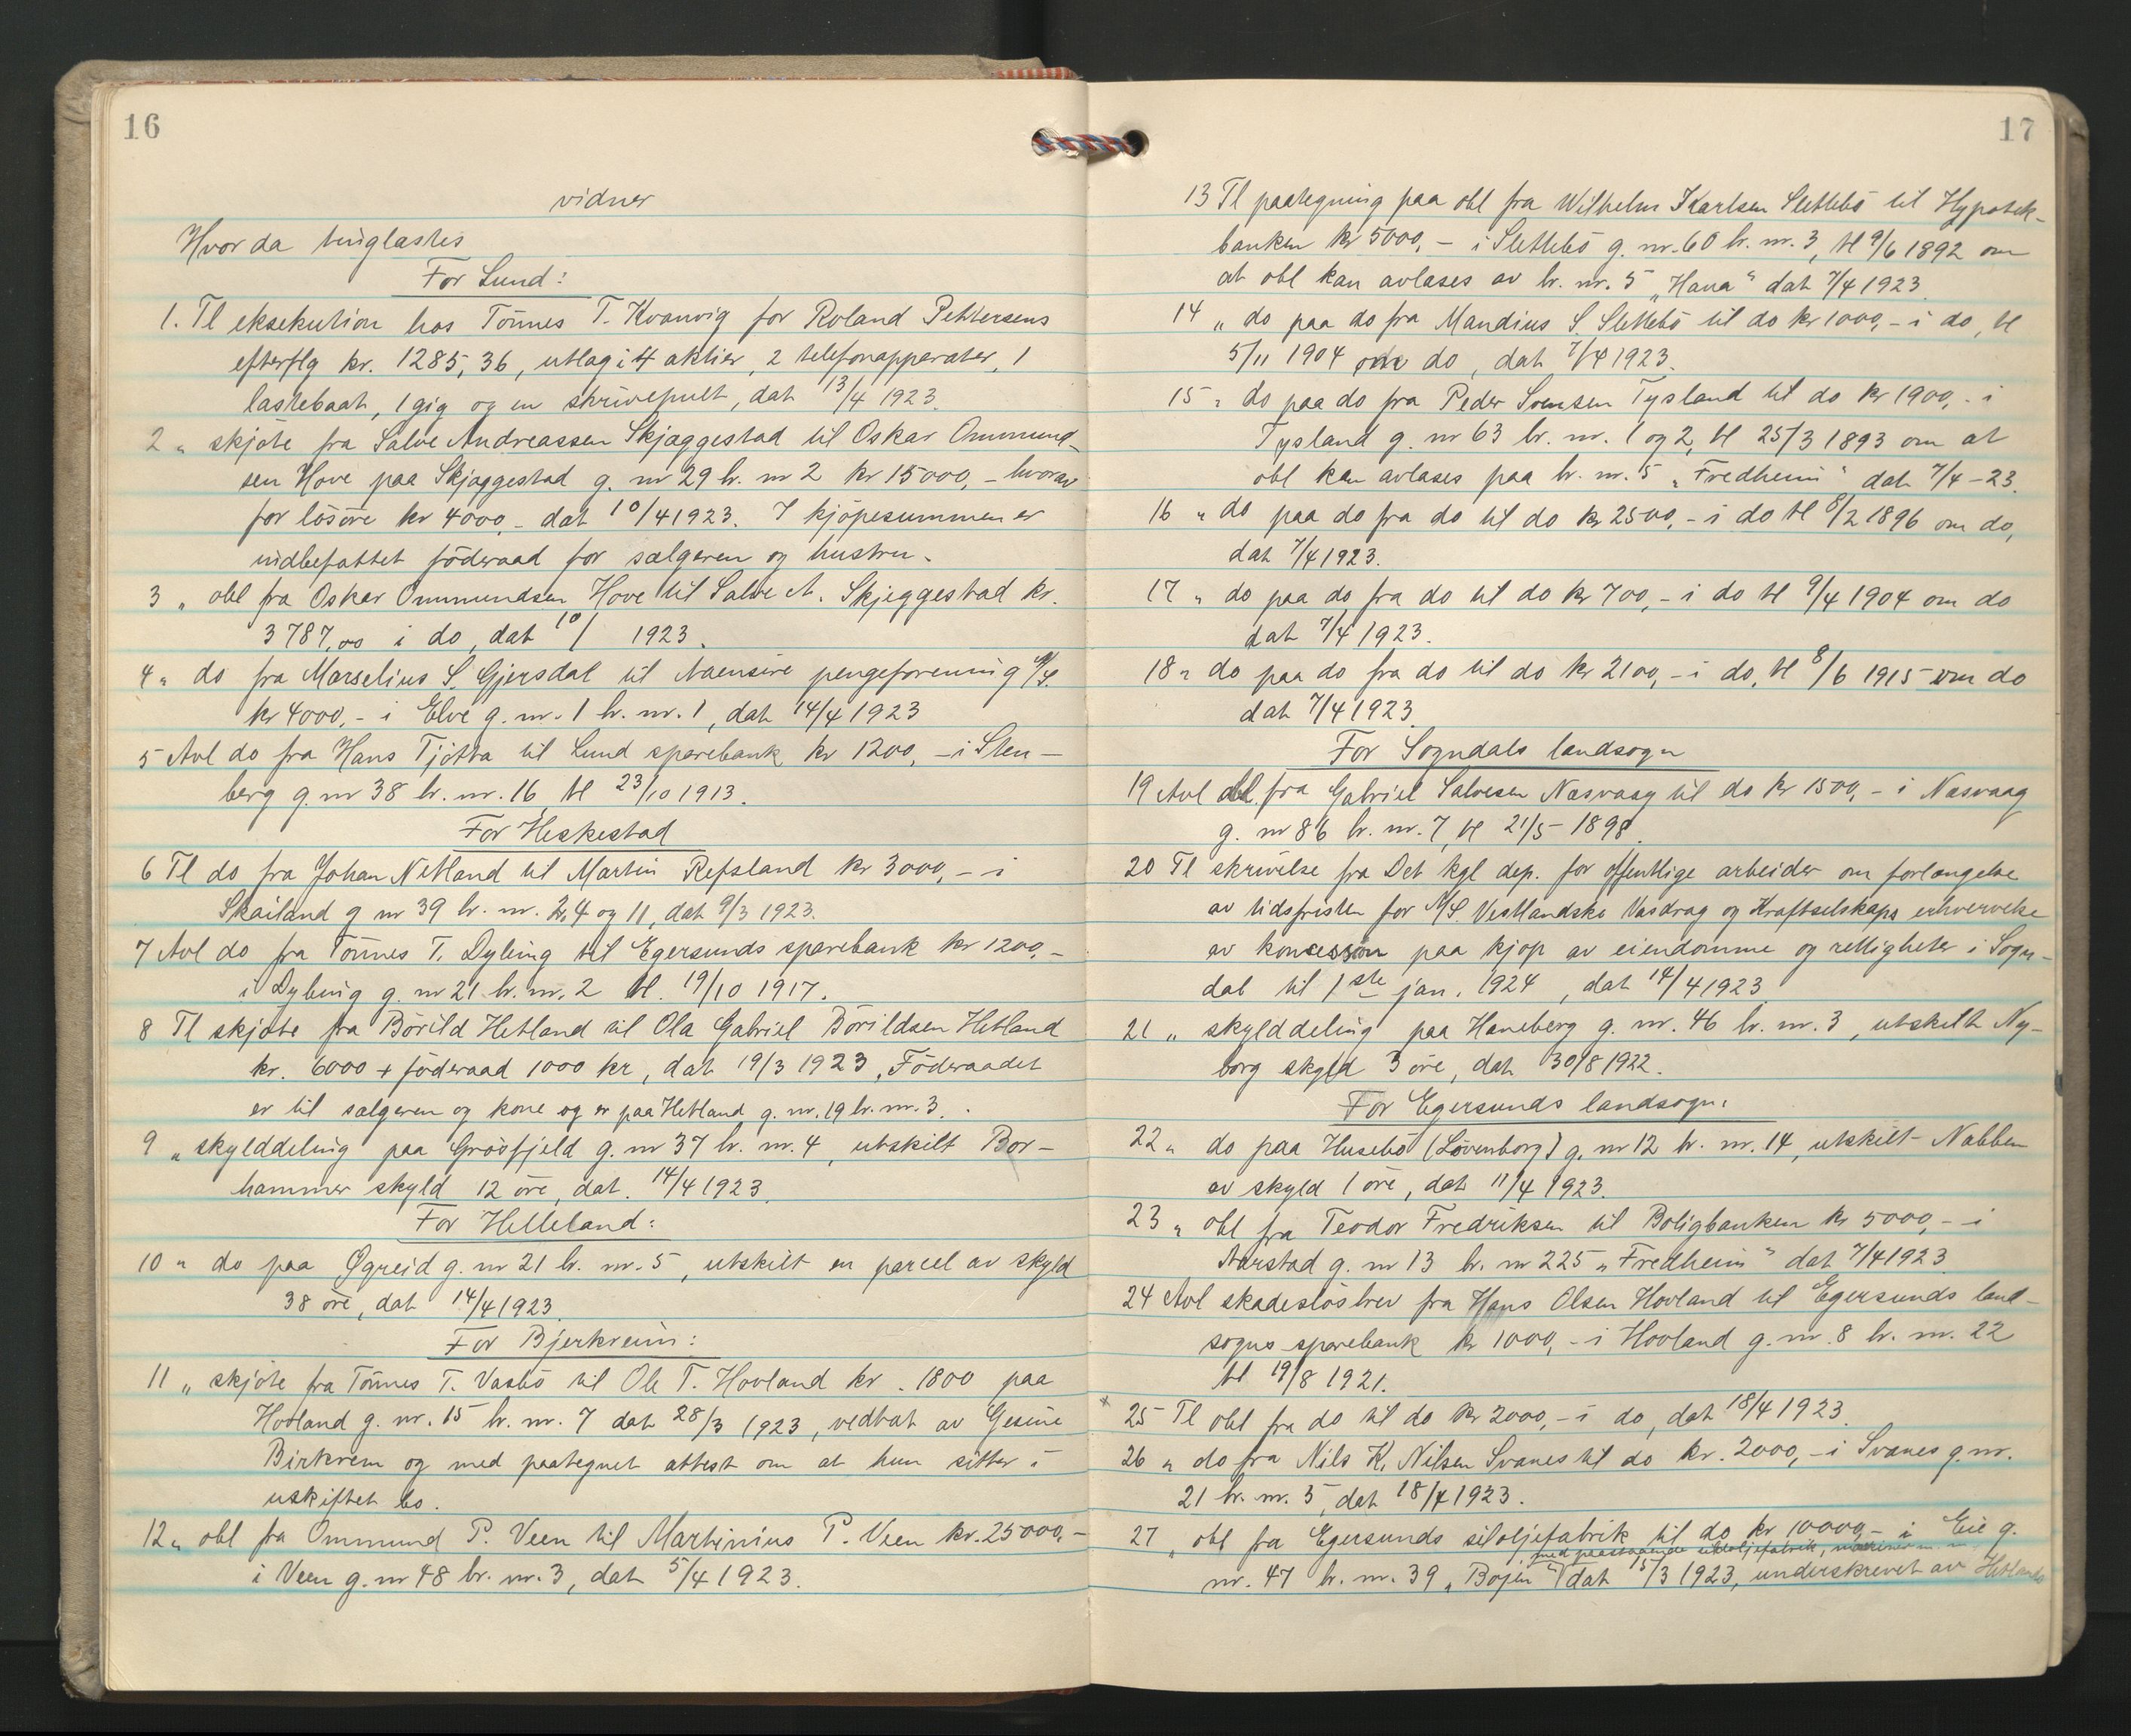 16
vidner
Hvor da tinglæstes
For Lund:
1. Tl eksekution hos Tönnes T. Kvanvig for Roland Pettersens
efterflg kr. 1285,36, utlag i 4 aktier, 2 telefonapparater, 1
lastebaat, 1 gig og en skrivepult, dat 13/4 1923.
2 " skjöte fra Salve Andreassen Skjæggestad til Oskar Ommund-
sen Hove paa Skjæggestad g. nr 29 br. nr 2 kr 15000,- hvorav
for lösöre kr 4000,- dat 10/4 1923. I kjöpesummen er
indbefattet föderaad for sælgeren og hustru.
3 " obl fra Oskar Ommundsen Hove til Salve A. Skjeggestad kr.
3787,00 i do, dat 10/ 1923.
4 " do fra Marselius S. Gjersdal til Naensire pengeforening A/S.
kr 4000,- i Elve g. nr. 1 br. nr. 1, dat 14/4 1923
5 Avl do fra Hans Tjötta til Lund sparebank kr 1200,- i Sten-
berg g nr 38 br. nr. 16, tl 23/10 1913.
For Heskestad
6 Tl do fra Johan Netland til Martin Refsland kr 3000,- i
Skailand g nr 39 br. nr. 2, 4 og 11, dat 9/3 1923.
7 Avl do fra Tönnes T. Dybing til Egersunds sparebank kr 1200,-
i Dybing g. nr 21 br. nr. 2 tl. 19/10 1917.
8 Tl skjöte fra Börild Hetland til Ola Gabriel Börildsen Hetland
kr. 6000 + föderaad 1000 kr, dat 19/3 1923, Föderaadet
er til sælgeren og kone og er paa Hetland g. nr. 19 br. nr. 3.
9 " skylddeling paa Grösfjeld g. nr 37 br. nr. 4, utskilt Bor-
hammer skyld 12 öre, dat. 14/4 1923.
For Helleland:
10 " do paa Øgreid g. nr 21 br. nr. 5, utskilt en parcel av skyld
38 öre, dat 14/4 1923.
For Bjerkreim:
11 " skjöte fra Tönnes T. Vasbö til Ole T. Hovland kr. 1800 paa
Hovland g. nr. 15 br. nr. 7 dat 28/3 1923, vedtat av Gesine
Birkrem og med paategnet attest om at hun sitter i
uskiftet bo.
12 " obl fra Ommund P. Veen til Martinius P. Veen kr. 25000,-
i Veen g. nr 48 br. nr. 3, dat 5/4 1923.
17
13 Tl paategning paa obl fra Wilhelm Karlsen Slettebö til Hypotek-
banken kr 5000,- i Slettebö g. nr. 60 br. nr. 3, tl 9/6 1892 om
at obl kan avlæses av br. nr. 5 „Hana" dat 7/4 1923.
14 " do paa do fra Mandius S. Slettebö til do kr 1000,- i do, tl
5/11 1904 om do, dat 7/4 1923.
15 " do paa do fra Peder Svensen Tysland til do kr 1900,- i
Tysland g. nr 63 br. nr. 1 og 2, tl 25/3 1893 om at
obl kan avlæses paa br. nr. 5 „Fredheim" dat 7/4-23.
16 " do paa do fra do til do kr 2500,- i do tl 8/2 1896 om do,
dat 7/4 1923.
17 " do paa do fra do til do kr 700,- i do tl 9/4 1904 om do
dat 7/4 1923.
18 " do paa do fra do til do kr 2100,- i do, tl 8/6 1915 om do
dat 7/4 1923.
For Sogndals landsogn
19 Avl obl. fra Gabriel Salvesen Næsvaag til do kr 1500,- i Næsvaag
g. nr 86 br. nr. 7, tl 21/5 1898.
20 Tl skrivelse fra Det kgl dep. for offentlige arbeider om forlængelse
av tidsfristen for A/S Vestlandske Vasdrag og Kraftselskaps erhvervelse
av koncession paa kjöp av eiendomme og rettigheter i Sogn-
dal til 1ste jan. 1924, dat 14/4 1923
21 " skylddeling paa Haneberg g. nr. 46 br. nr. 3, utskilt Ny-
borg skyld 3 öre, dat 30/8 1922.
For Egersunds landsogn:
22 " do paa Husebö (Lövenborg) g. nr 12 br. nr. 14, utskilt Nabben
av skyld 1 öre, dat 11/4 1923.
23 " obl fra Teodor Fredriksen til Boligbanken kr 5000,- i
Aarstad g. nr 13 br. nr 225 „Fredheim" dat 7/4 1923
24 Avl skadeslösbrev fra Hans Olsen Hovland til Egersunds land-
sogns sparebank kr 1000,- i Hovland g. nr. 8 br. nr. 22
tl 19/8 1921.
* 25 Tl obl fra do til do kr 2000,- i do, dat 18/4 1923.
26 " do fra Nils K. Nilsen Svanes til do kr. 2000,- i Svanes g. nr.
21 br. nr. 5, dat 18/4 1923.
27 " obl fra Egersunds sildoljefabrik til do kr 10000,- i Eie g.
med paastaaende sildoljefabrik,
nr. 47 br. nr. 39 „Bojen" dat 15/3 1923, underskrevet av